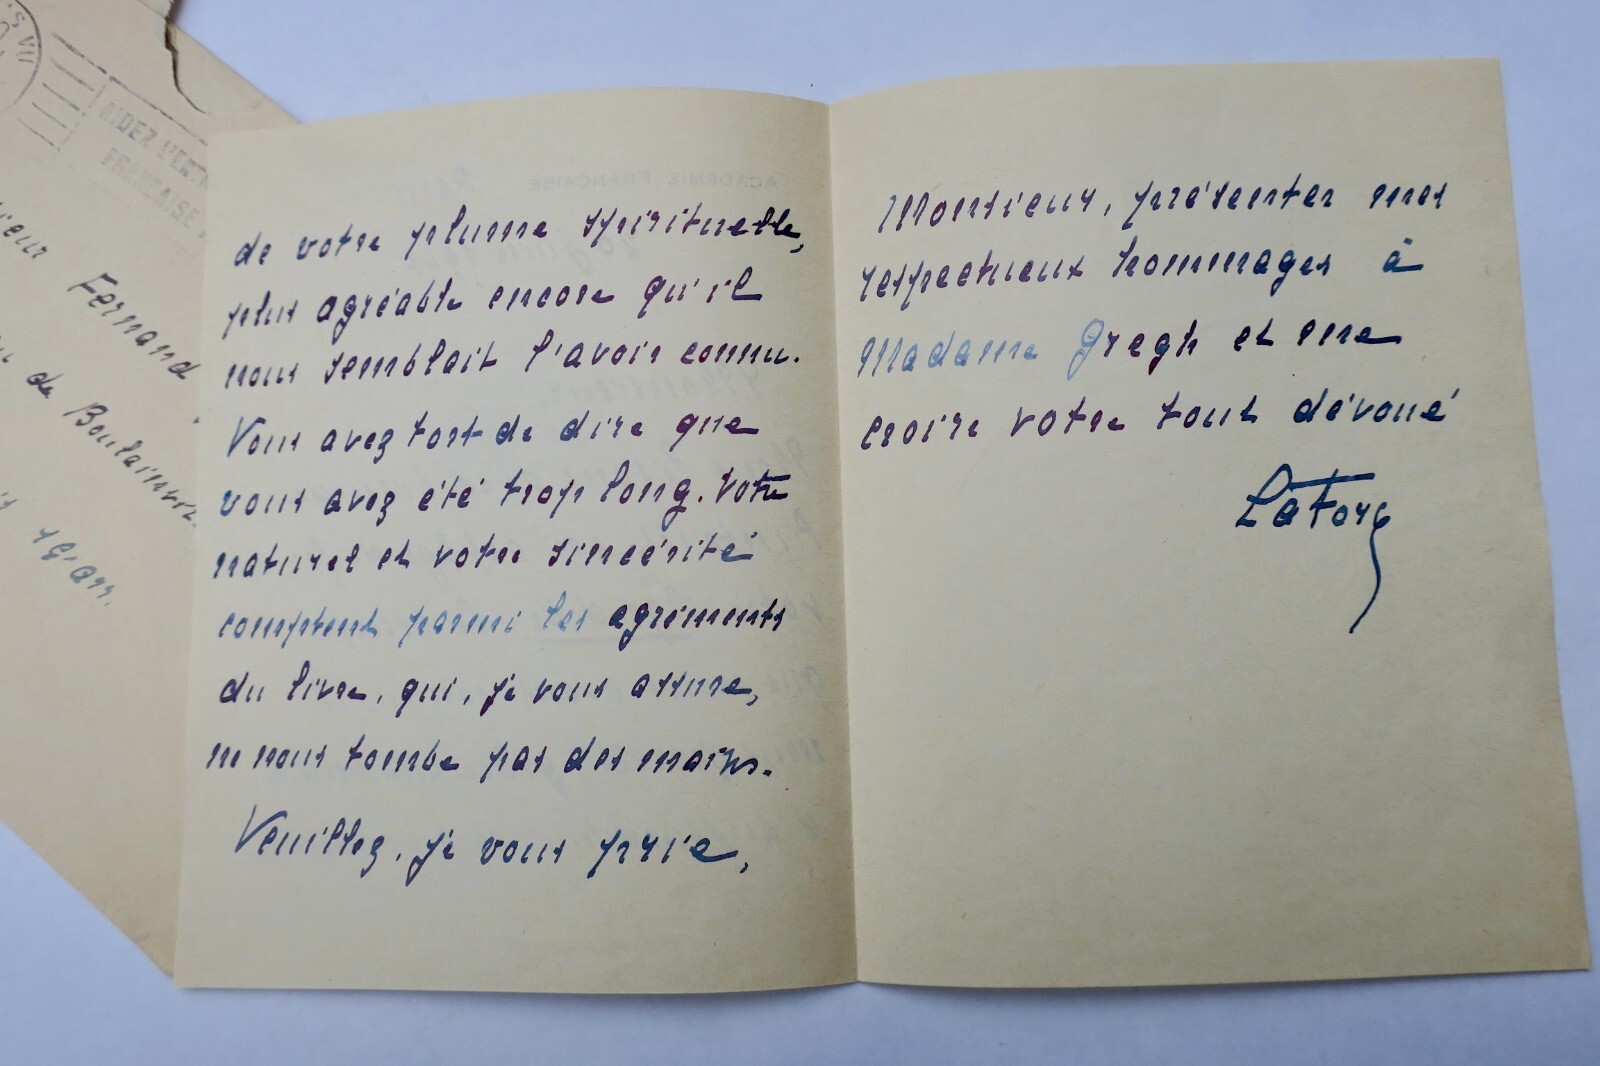 AIDEZ L'ENT
FRANCAISE
Fernand
de Boulainvil
ACADÉMIE FRANÇAISE
de votre plume spirituelle,
plus agréable encore qu'il
nous semblait l'avoir connu.
Vous avez tort de dire que
vous avez été trop long. Votre
naturel et votre sincérité
comptent parmi les agréments
du livre, qui, je vous assure,
ne nous tombe pas des mains.
Veuillez, je vous prie,
Monsieur, présenter mes
respectueux hommages à
Madame Gregh et me
croire votre tout dévoué
La Force